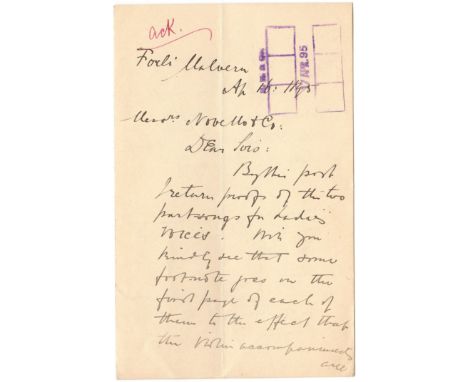 ack.
Forli Malvern
Ap 16: 1895
Messrs Novello & Co:
Dear Sirs:
By this post
I return proofs of the two
partsongs for Ladies'
voices. Will you
kindly see that some
footnote goes on the
first page of each of
them to the effect that
the Violin accompaniments
are
APR. 95